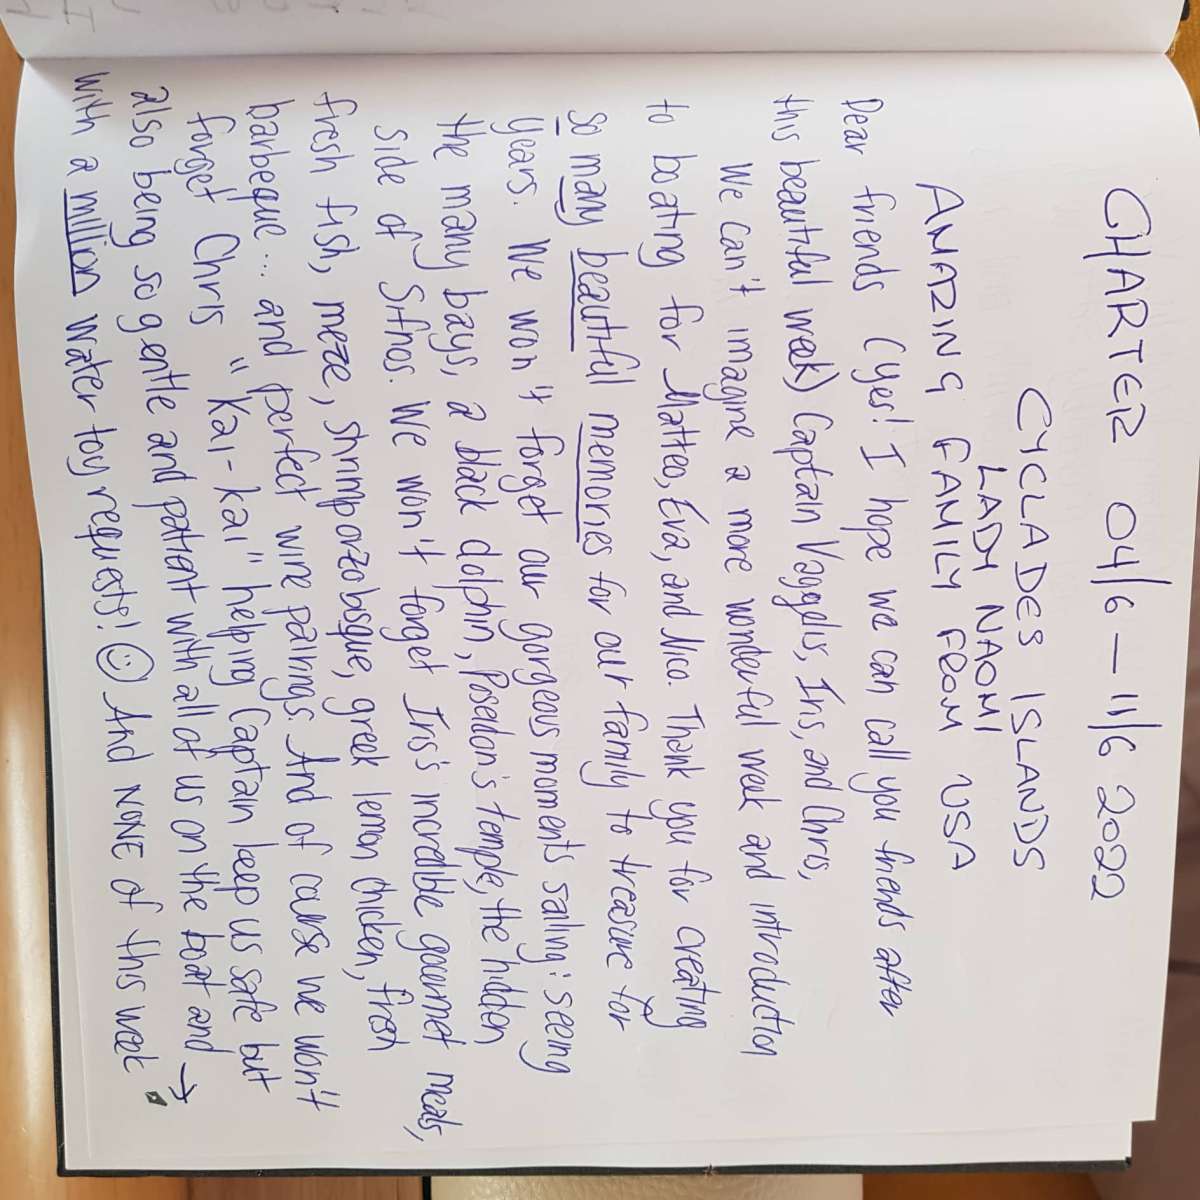 CHARTER 04/6 – 11/6 2022
CYCLADES ISLANDS
LADY NAOMI
AMAZING FAMILY FROM USA
Dear friends (yes! I hope we can call you friends after
this beautiful week) Captain Vaggelis, Iris, and Chris,
We can't imagine a more wonderful week and introduction
to boating for Matteo, Eva, and Nico. Thank you for creating
So many beautiful memories for our family to treasure for
years. We won't forget our gorgeous moments sailing: seeing
the many bays, a black dolphin, Poseidon's temple, the hidden
side of Sifnos. We won't forget Iris's incredible gourmet meals,
fresh fish, meze, shrimp orzo bisque, greek lemon chicken, fresh
barbeque... and perfect wine pairings. And of course we won't
forget Chris "kai-kai" helping Captain keep us safe but
also being so gentle and patient with all of us on the boat and →
with a million water toy requests! ☺ And NONE of this week